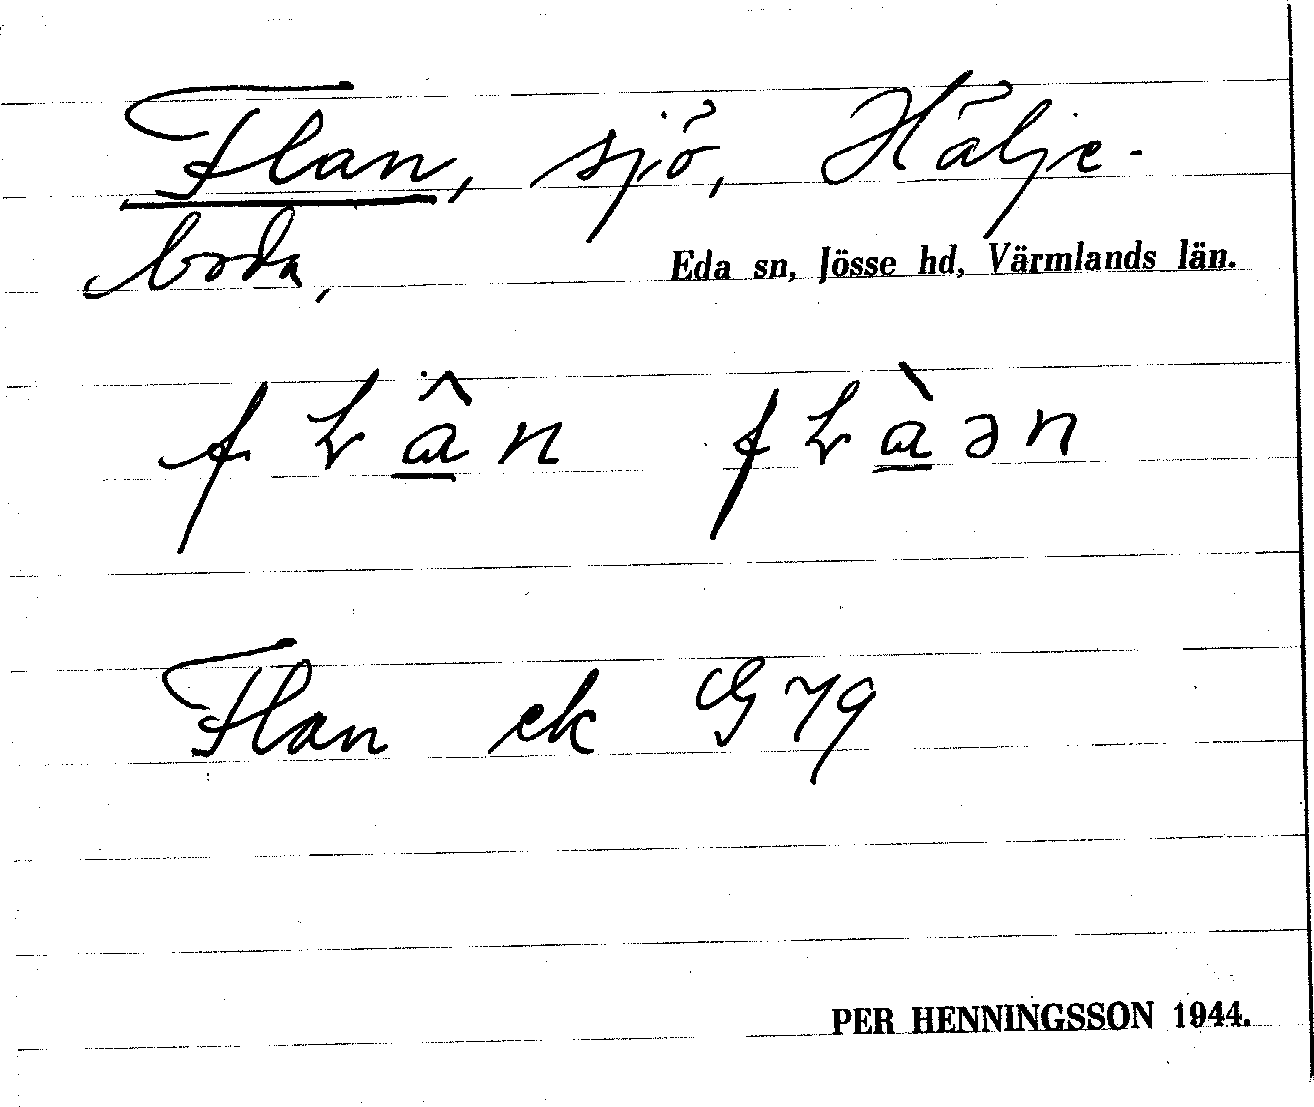 Flan, sjö, Hälje-
boda,
Eda sn, Jösse hd, Värmlands län.
f ł â̲ n f ł à̲ ə n
Flan ek G 79
PER HENNINGSSON 1944.